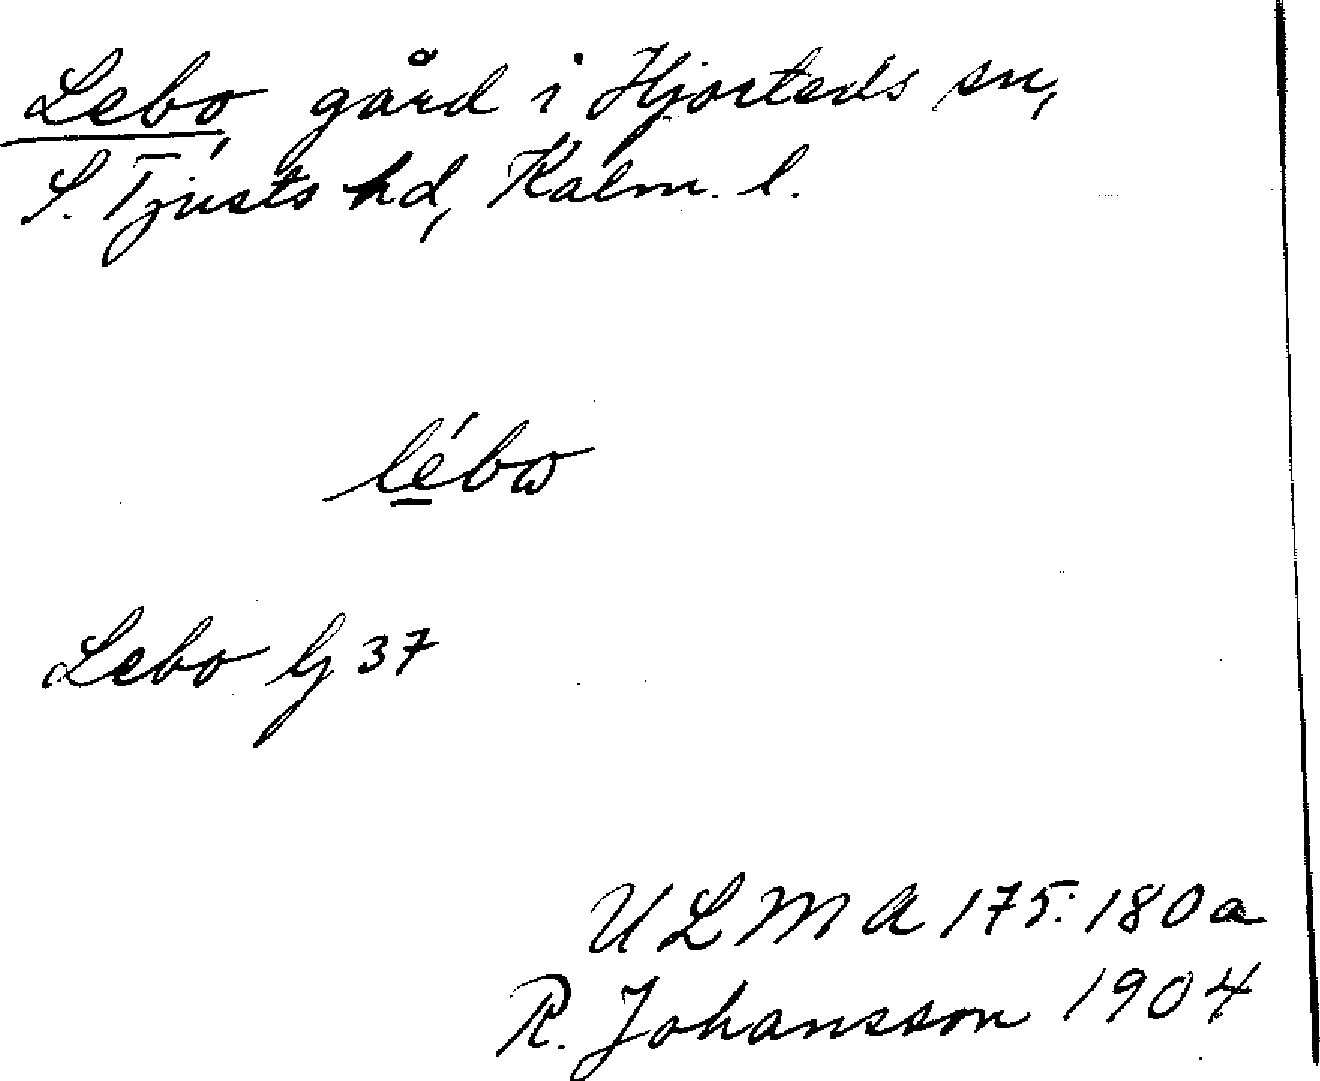 Lebo, gård i Hjorteds sn,
S. Tjusts hd, Kalm. l.
lébω
Lebo lj 37
ULMA 175:180a
R. Johansson 1904